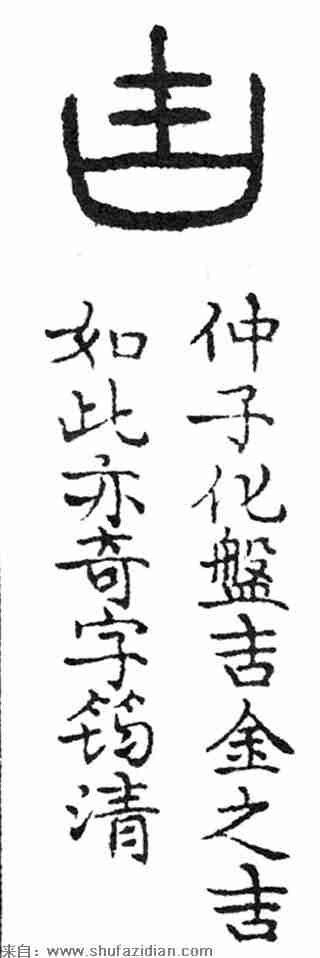 仲子化盤吉金之吉
如此亦奇字筠清
来自：www.shufazidian.com